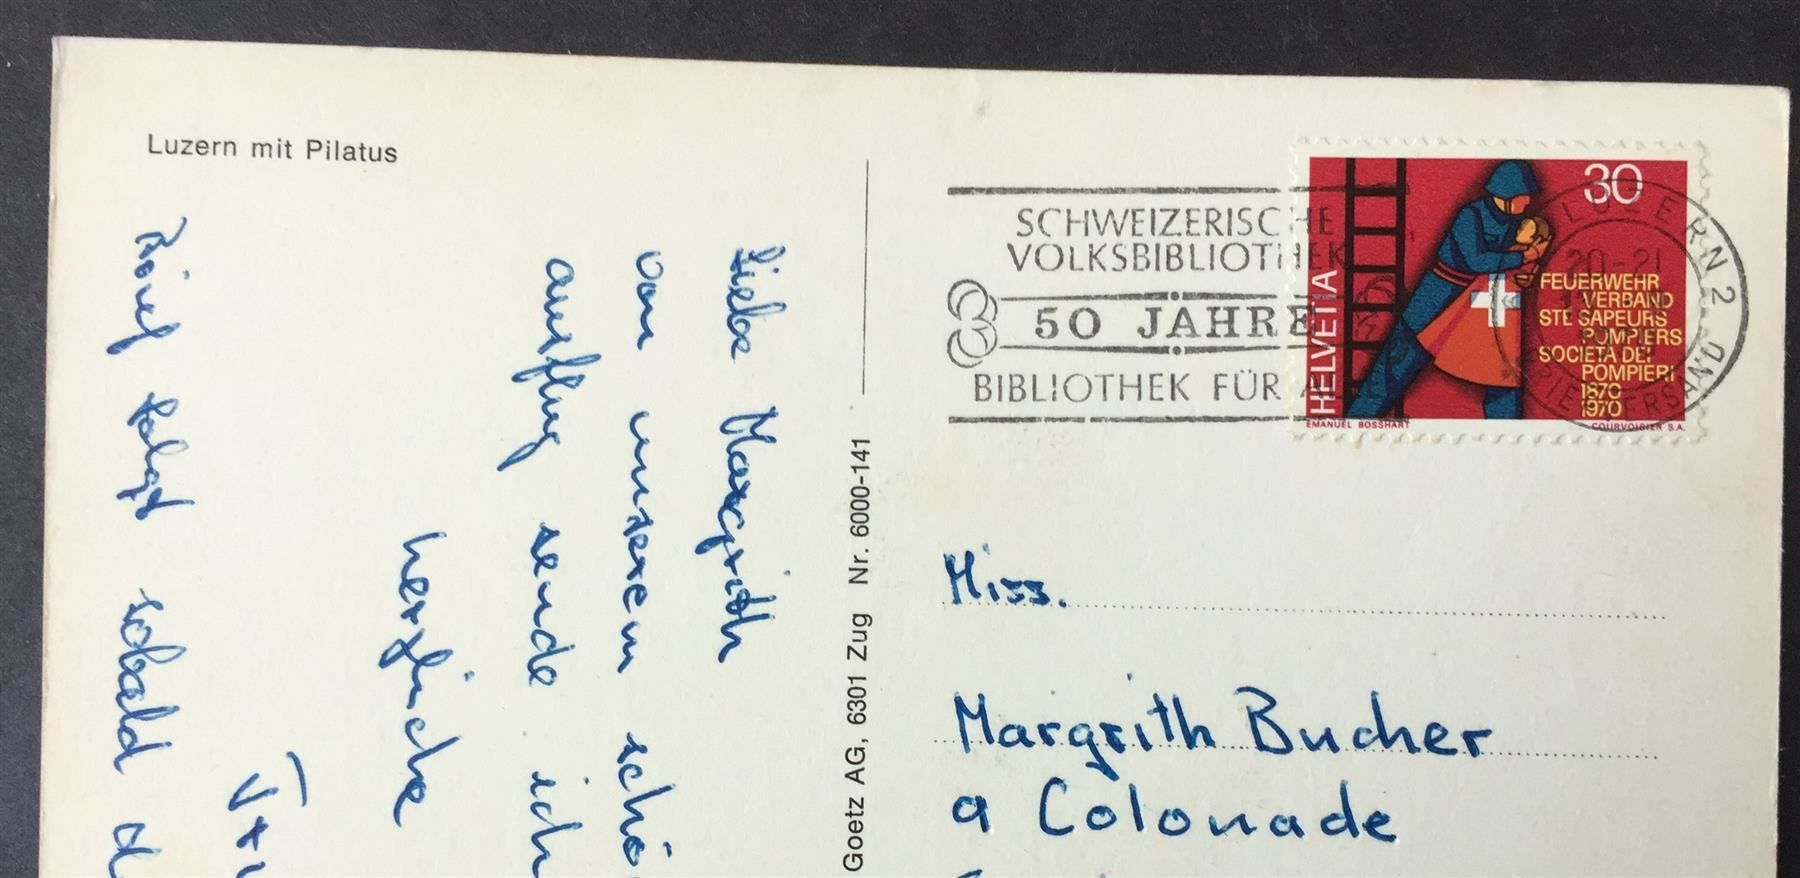 Luzern mit Pilatus
Liebe Margrith
von unserem schö
ausflug sende ich
herzliche
folgt sobald d
Goetz AG, 6301 Zug Nr. 6000-141
SCHWEIZERISCHE
VOLKSBIBLIOTHEK
50 JAHRE
BIBLIOTHEK FÜR
30
HELVETIA
FEUERWEHR
VERBAND
STE SAPEURS
POMPIERS
SOCIETÀ DEI
POMPIERI
1870
1970
EMANUEL BOSSHART
COURVOISIER S.A.
LUZERN 2
20-21
BRIEFVERSAND
Miss.
Margrith Bucher
9 Colonade